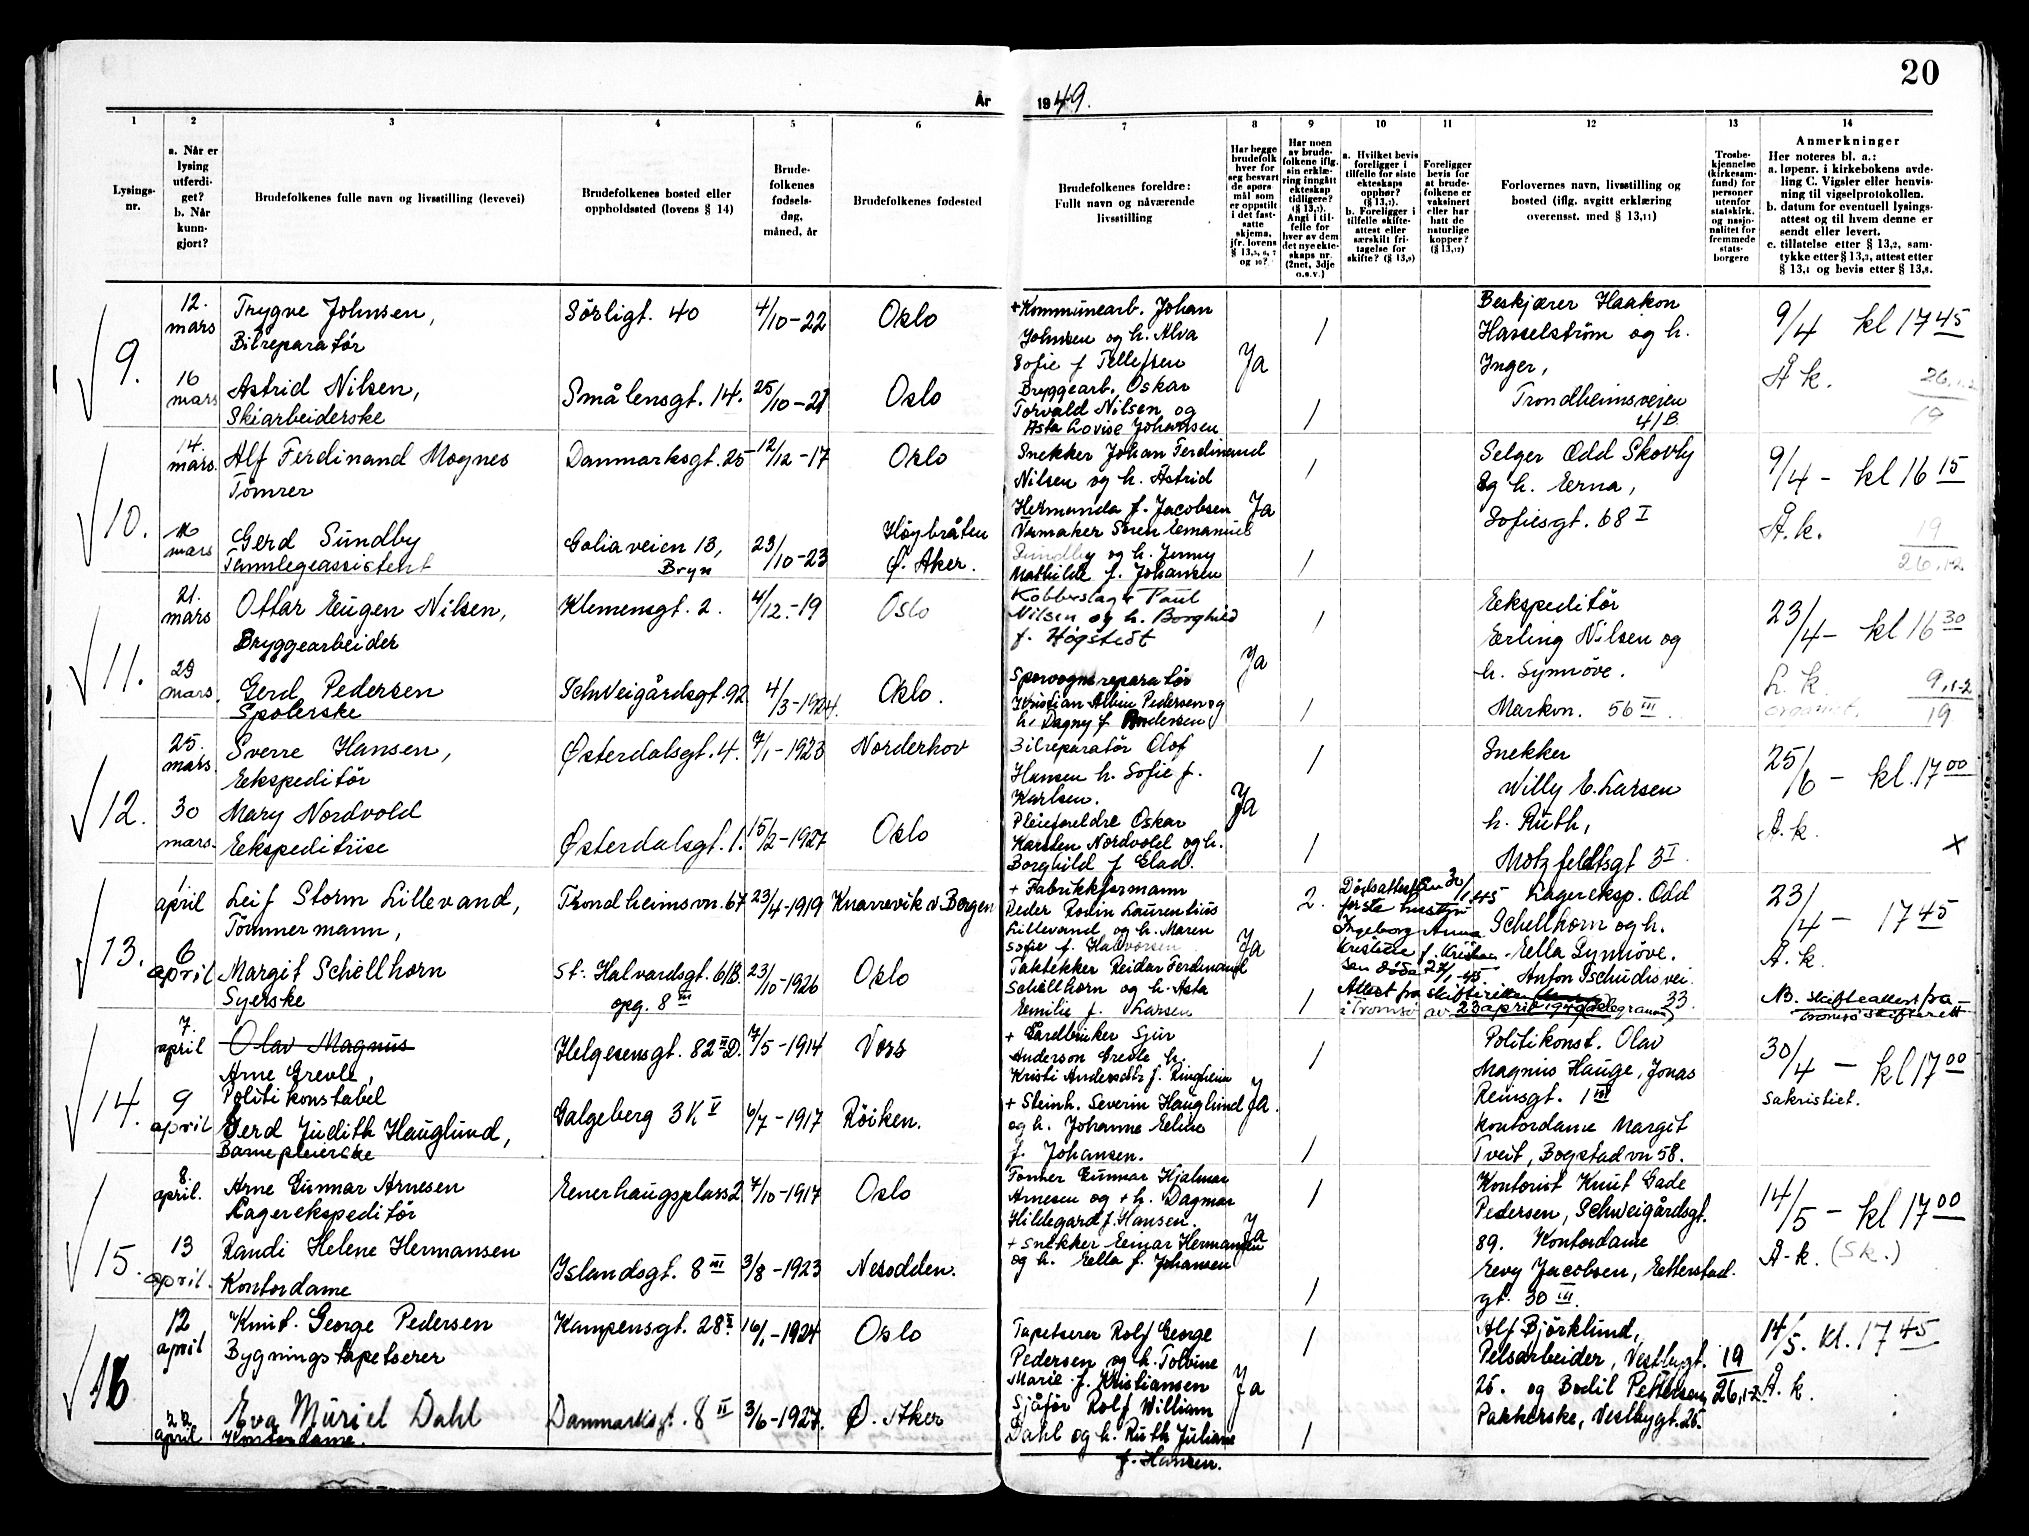 20
År 1949.
1 2 3 4 5 6 7 8 9 10 11 12 13 14
Lysings-
nr.
a. Når er
lysing
utferdi-
get?
b. Når
kunn-
gjort?
Brudefolkenes fulle navn og livsstilling (levevei)
Brudefolkenes bosted eller
oppholdssted (lovens § 14)
Brude-
folkenes
fødsels-
dag,
måned, år
Brudefolkenes fødested
Brudefolkenes foreldre:
Fullt navn og nåværende
livsstilling
Har begge
brudefolk
hver for
seg besvart
de spørs-
mål som
er oppstilt
i det fast-
satte
skjema,
jfr. lovens
§ 13,5, 6, 7
og 10?
Har noen
av brude-
folkene iflg.
sin erklæ-
ring inngått
ekteskap
tidligere?
(§ 13,7).
Angi i til-
felle for
hver av dem
det nye ekte-
skaps nr.
(2net, 3dje
o.s.v.)
a. Hvilket bevis
foreligger i
tilfelle for siste
ekteskaps
opphør?
(§ 13,7).
b. Foreligger i
tilfelle skifte-
attest eller
særskilt fri-
tagelse for
skifte? (§ 13,9)
Foreligger
bevis for
at brude-
folkene er
vaksinert
eller har
hatt de
naturlige
kopper?
(§ 13,12)
Forlovernes navn, livsstilling og
bosted (iflg. avgitt erklæring
overensst. med § 13,11)
Trosbe-
kjennelse
(kirkesam-
fund) for
personer
utenfor
statskirk.
og nasjo-
nalitet for
fremmede
stats-
borgere
Anmerkninger
Her noteres bl. a.:
a. løpenr. i kirkebokens avde-
ling C. Vigsler eller henvis-
ning til vigselprotokollen.
b. datum for eventuell lysings-
attest og til hvem denne er
sendt eller levert.
c. tillatelse etter § 13,2, sam-
tykke etter § 13,3, attest etter
§ 13,1 og bevis etter § 13,8.
9.
12.
mars
Trygve Johnsen,
Bilreparatør
Sörligt. 40
4/10-22
Oslo
+Kommunearb. Johan
Johnsen og h. Alva
Sofie f Tellefsen
1
Ja
Beskjærer Haakon
Hasselström og h.
Inger,
Trondheimsveien
41B.
9/4 kl 17 45
Å k.
26,1-2
19
16
mars
Astrid Nilsen,
Skiarbeiderske
Smålensgt. 14.
25/10-21
Oslo
Bryggearb. Oskar
Torvald Nilsen og
Asta Lovise Johansen
1
10.
14.
mars.
Alf Ferdinand Mognes
Tömrer
Danmarksgt. 25
12/12-17
Oslo
Snekker Johan Ferdinand
Nilsen og h. Astrid
Hermanda f. Jacobsen
1
Ja
Selger Odd Skovly
og h. Erna,
Sofiesgt. 68 I
9/4 - kl 16 15
Å.k.
19
26,1-2
mars
Gerd Sundby
Tannlegeassistent
Goliaveien 13,
Bryn
23/10-23
Høybråten
Ø. Aker.
Urmaker Sören Emanuel
Sundby og h. Jenny
Mathilde f. Johansen
1
11.
21.
mars
Ottar Eugen Nilsen,
Bryggearbeider
Klemensgt. 2.
4/12.-19
Oslo
Kobberslager Paul
Nilsen og h. Borghild
f. Högstedt
1
Ja
Ekspeditör
Erling Nilsen og
h. Synnöve.
Markvn. 56 III
23/4- kl 16 30
L. k.
9,1-2
19
23
mars.
Gerd Pedersen
Spolerske
Schweigårdsgt. 92
4/3-1924.
Oslo.
Sporvognsreparatör
Kristian Albin Pedersen og
h. Dagny f. Andersen
1
12.
25.
mars.
Sverre Hansen,
Ekspeditör
Østerdalsgt. 4.
7/1-1923
Norderhov
Bilreparatör Olof
Hansen h. Sofie f.
Karlsen.
1
Ja
Snekker
Willy E. Larsen
h. Ruth,
Motzfeldtsgt 3 I
25/6 - kl. 17 00
Å.k.
x
30
mars.
Mary Nordvold
Ekspeditrise
Østerdalsgt. 1.
15/2-1927
Oslo
Pleieforeldre Oskar
Karsten Nordvold og h.
Borghild f. Elad.
1
13.
1
april
Leif Storm Lillevand,
Tömmermann,
Trondheimsvn. 67
23/4-1919
Knarrevik v. Bergen
+ Fabrikkformann
Peder Rodin Laurentius
Lillevand og h. Maren
Sofie f. Halvorsen
2.
Ja
Dödsattest
30/1 45
første hustru
Ingeborg Anna
Kristine f. Kristian-
sen död 27/1-45
Attest fra skifteretten
i Tromsö av 23 april 1949 (telegram)
Lagereksp. Odd
Schellhorn og h.
Ella Synnöve.
Anton Tschudis vei
33.
23/4 - 17 45
Å.k.
NB. skifteattest fra
Tromsö skifterett
6
april
Margit Schellhorn
Syerske
St. Halvardsgt. 61B.
opg. 8 III
23/10-1926
Oslo
Taktekker Reidar Ferdinand
Schellhorn og h. Asta
Emilie f. Larsen
1
14.
7.
april
Olav Magnus
Arne Grevle,
Politikonstabel
Helgesensgt. 82 II D.
7/5-1914
Voss
+ Gardbruker Sjur
Anderson Grevle h.
Kristi Andersdtr f. Ringheim
1
Ja.
Politikonst. Olav
Magnus Hauge, Jonas
Reinsgt. 1 III
Kontordame Margit
Tveit, Bogstadvn 58.
30/4 - kl 17 00
Sakristiet.
9
april
Gerd Judith Hauglund,
Barnepleierske
Galgeberg 3K V
6/7-1917
Röiken.
+ Steinh. Severin Hauglund
og h. Johanne Eline
f. Johansen.
1
15.
8.
april.
Arne Gunnar Arnesen
Lagerekspeditör
Enerhaugsplass 2
7/10-1917
Oslo
Former Gunnar Hjalmar
Arnesen og + h. Dagmar
Hildegard f. Hansen.
1
Ja
Kontorist Knut Gade
Pedersen, Schweigårdsgt.
89. Kontordame
Evy Jacobsen, Etterstad.
gt. 30 III.
14/5 - kl 17 00
Å-k. (Sk.)
13
april.
Randi Helene Hermansen
Kontordame
Islandsgt. 8 III
3/8-1923
Nesodden.
+ Snekker Einar Hermansen
og h. Ella f. Johansen
1
16
12
april
Knut. George Pedersen
Bygningstapetserer
Kampensgt. 28 I
16/1-1924
Oslo
Tapetserer Rolf George
Pedersen og h. Tolvine
Marie f. Kristiansen
1
Ja
Alf Björklund,
Pelsarbeider, Vestbygt.
25. og Bodil Pettersen
Pakkerske, Vestbygt. 25.
19
26,1-2.
14/5. kl. 17 45
Å.k.
22
april
Eva Muriel Dahl
Kontordame.
Danmarksgt. 8 II
3/6-1927.
Ø. Aker
Sjåför Rolf William
Dahl og h. Ruth Juliane
f. Hansen.
1